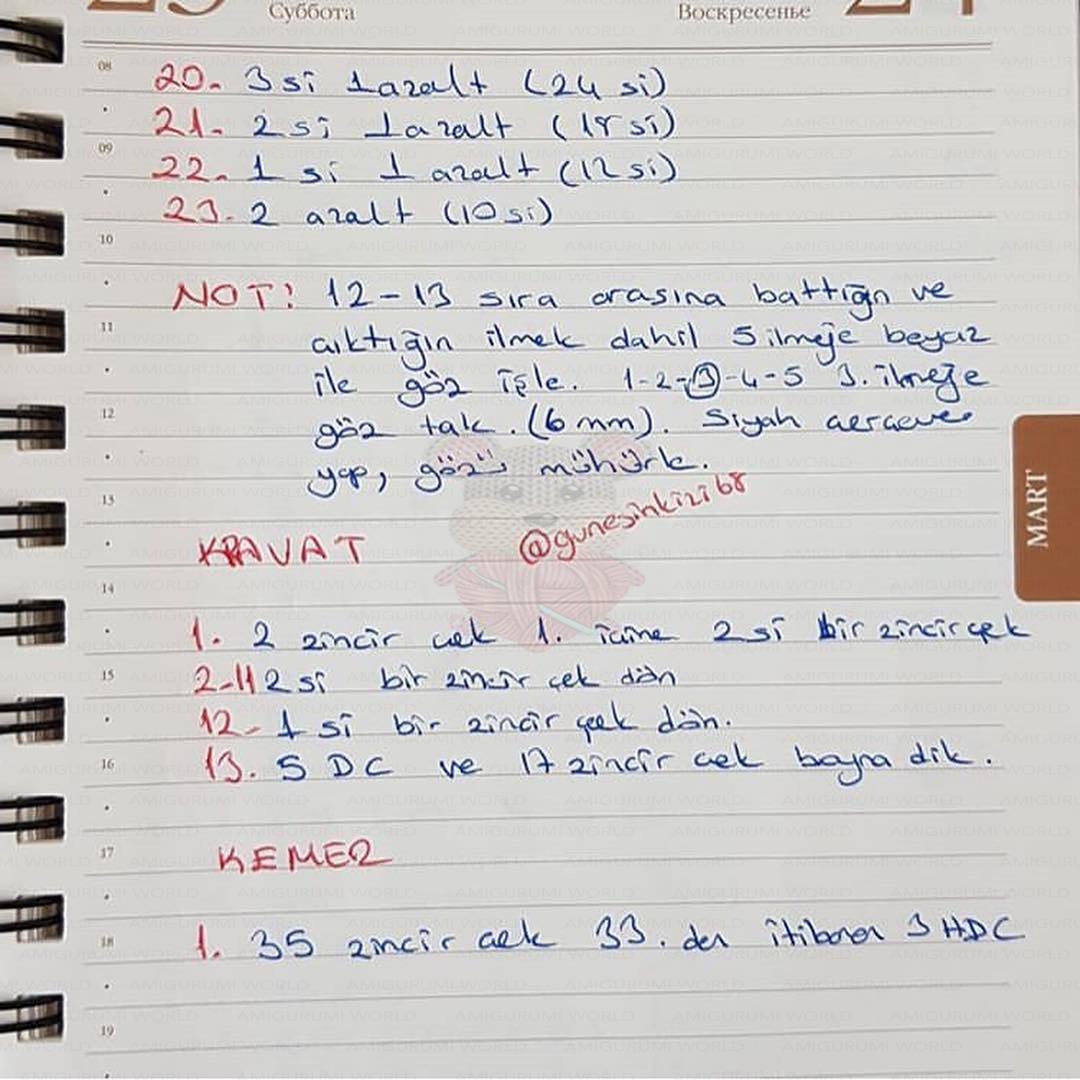 Суббота
Воскресенье
08
20. 3 si 1 azalt (24 si)
21. 2 si 1 azalt (18 si)
09
22. 1 si 1 azalt (12 si)
23. 2 azalt (10 si)
10
NOT! 12-13 sıra arasına battığın ve
11
çıktığın ilmek dahil 5 ilmeğe beyaz
ile göz işle. 1-2-3-4-5 3. ilmeğe
12
göz tak. (6 mm). Siyah çerçeve
yap, gözü mühürle.
13
@gunesinkizi68
KRAVAT
MART
14
1. 2 zincir çek 1. içine 2 si bir zincir çek
15
2-11 2 si bir zincir çek dön
12- 1 si bir zincir çek dön.
16
13. 5 DC ve 17 zincir çek boyna dik.
17
KEMER
18
1. 35 zincir çek 33. den itibaren 3 HDC
19
AMIGURUMI WORLD